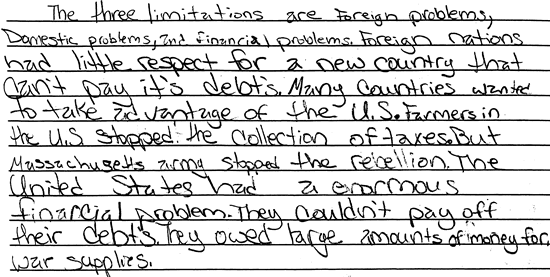 The three limitations are Foreign problems,
Domestic problems, and financial problems. Foreign nations
had little respect for a new country that
Can't pay it's debt's. Many Countries wanted
to take advantage of the U.S. Farmers in
the U.S stopped the collection of taxes. But
Massachusetts army stopped the rebellion. The
United States had a enormous
financial problem. They couldn't pay off
their debt's. They owed large amounts of money for
war supplies.